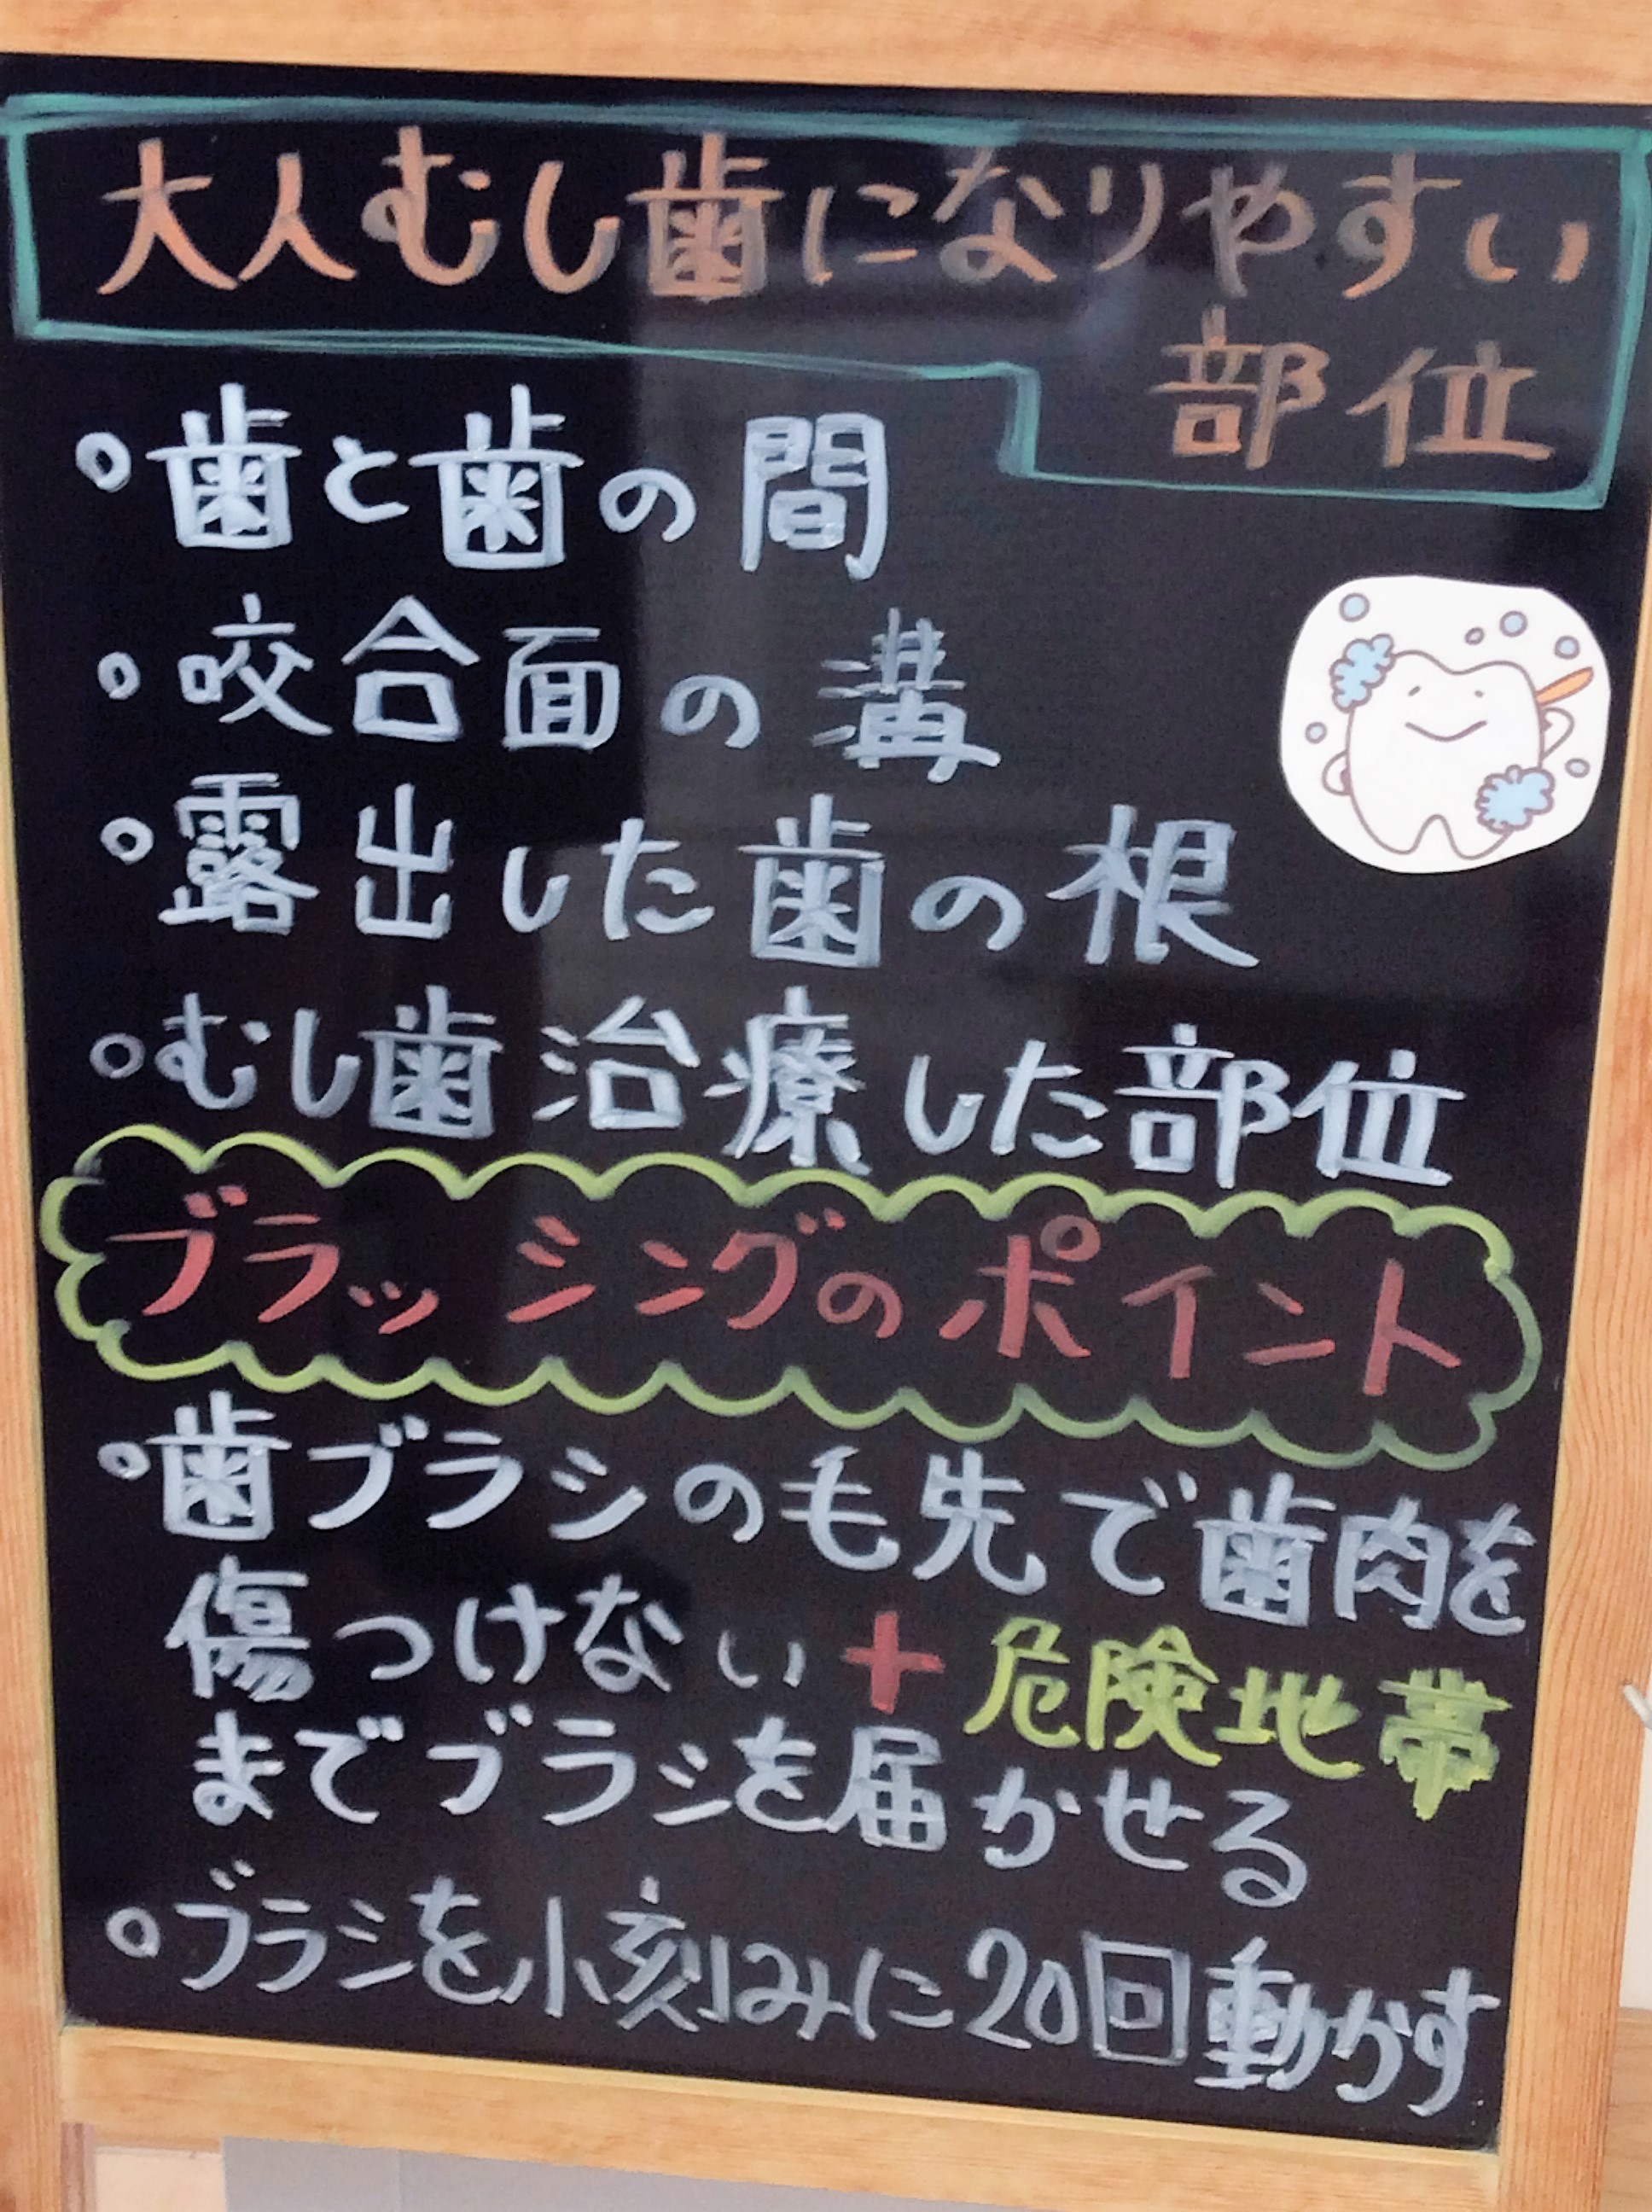 大人むし歯になりやすい
部位
○歯と歯の間
○咬合面の溝
○露出した歯の根
○むし歯治療した部位
ブラッシングのポイント
○歯ブラシの毛先で歯肉を
傷つけない+危険地帯
までブラシを届かせる
○ブラシを小刻みに20回動かす